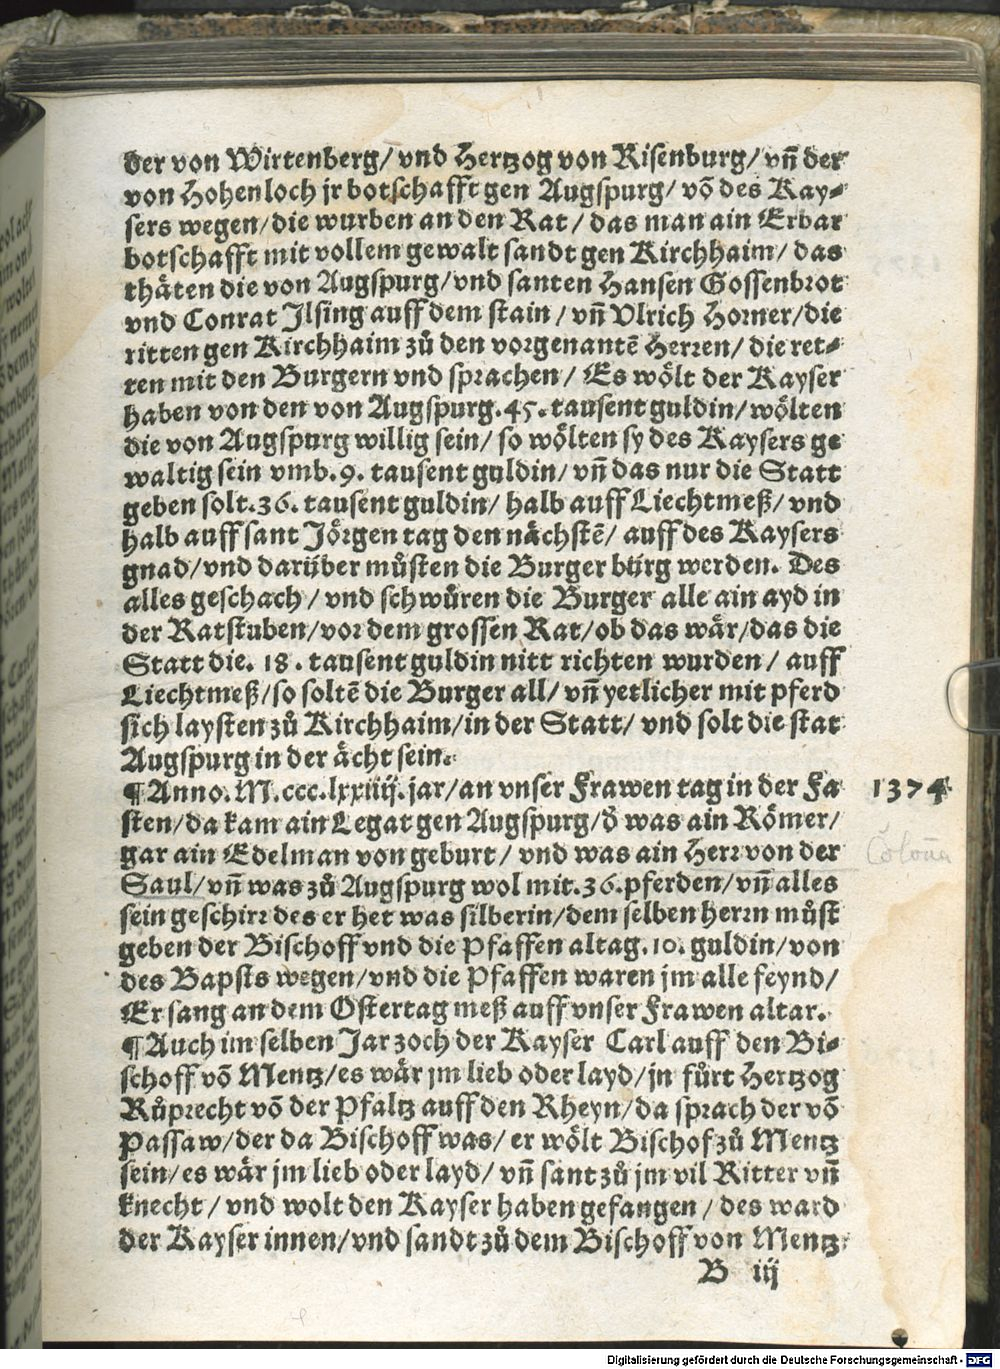 der von Wirtenberg/ vnd Hertzog von Risenburg/ vn̄ der
von Hohenloch jr botschafft gen Augspurg/ võ des Kay⸗
sers wegen/ die wurben an den Rat/ das man ain Erbar
botschafft mit vollem gewalt sandt gen Kirchhaim/ das
thäten die von Augspurg/ vnd santen Hansen Gossenbrot
vnd Conrat Jlsing auff dem stain/ vn̄ Vlrich Horner/ die
ritten gen Kirchhaim zů den vorgenantẽ Herren/ die ret⸗
ten mit den Burgern vnd sprachen/ Es wölt der Kayser
haben von den von Augspurg. 45. tausent guldin/ wölten
die von Augspurg willig sein/ so wölten sy des Kaysers ge
waltig sein vmb. 9. tausent guldin/ vn̄ das nur die Statt
geben solt. 36. tausent guldin/ halb auff Liechtmeß/ vnd
halb auff sant Jörgen tag den nächstẽ/ auff des Kaysers
gnad/ vnd darüber můsten die Burger bürg werden. Des
alles geschach/ vnd schwůren die Burger alle ain ayd in
der Ratstuben/ vor dem grossen Rat/ ob das wär/ das die
Statt die. 18. tausent guldin nitt richten wurden/ auff
Liechtmeß/ so soltẽ die Burger all/ vn̄ yetlicher mit pferd
sich laysten zů Kirchhaim/ in der Statt/ vnd solt die stat
Augspurg in der ächt sein.
¶ Anno. M.ccc.lxxiiij. jar/ an vnser Frawen tag in der Fa 1374
sten/ da kam ain Legat gen Augspurg/ d̓ was ain Römer/
gar ain Edelman von geburt/ vnd was ain Herr von der Colon̄a
Saul/ vn̄ was zů Augspurg wol mit. 36. pferden/ vn̄ alles
sein geschirr des er het was silberin/ dem selben herrn můst
geben der Bischoff vnd die Pfaffen altag. 10. guldin/ von
des Bapsts wegen/ vnd die Pfaffen waren jm alle feynd/
Er sang an dem Ostertag meß auff vnser Frawen altar.
¶ Auch im selben Jar zoch der Kayser Carl auff den Bi⸗
schoff võ Mentz/ es wär jm lieb oder layd/ jn fůrt Hertzog
Růprecht võ der Pfaltz auff den Rheyn/ da sprach der võ
Passaw/ der da Bischoff was/ er wölt Bischof zů Mentz
sein/ es wär jm lieb oder layd/ vn̄ sant zů jm vil Ritter vn̄
knecht/ vnd wolt den Kayser haben gefangen/ des ward
der Kayser innen/ vnd sandt zů dem Bischoff von Mentz:
B iij
Digitalisierung gefördert durch die Deutsche Forschungsgemeinschaft - DFG